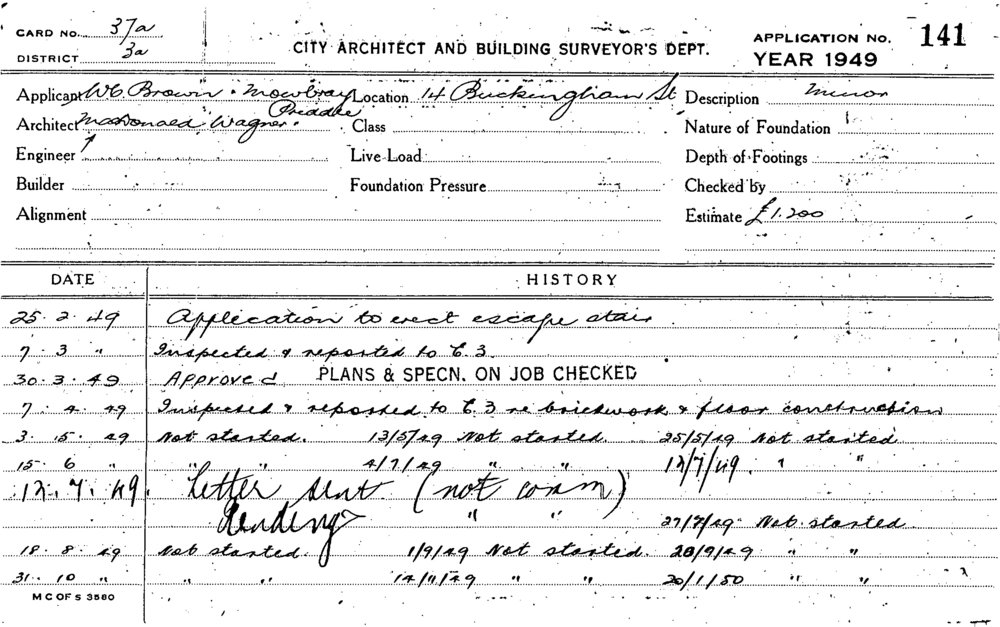 CARD No. 37a
DISTRICT 3a
CITY ARCHITECT AND BUILDING SURVEYOR'S DEPT.
APPLICATION No. 141
YEAR 1949
Applicant W.E. Brown · Mowbray Location 14 Buckingham St Description Minor
Priddle
Architect MacDonald Wagner Class Nature of Foundation
Engineer Live Load Depth of Footings
Builder Foundation Pressure Checked by
Alignment Estimate £1.200
DATE HISTORY
25. 2. 49 Application to erect escape stair
7. 3 " Inspected & reported to C.3.
30. 3. 49 Approved PLANS & SPECN. ON JOB CHECKED
7. 4. 49 Inspected & reported to C.3 re brickwork & floor construction
3. 15. 49 Not started. 13/5/49 Not started. 25/5/49 Not started
15. 6 " " " 4/7/49 " " 12/7/49. " "
12. 7. 49. Letter sent (not comm)
Pending " " 27/7/49 Not started
18. 8. 49 Not started. 1/9/49 Not started. 28/9/49 " "
31. 10 " " " 14/11/49 " " 20/1/50 " "
M C OF S 3580